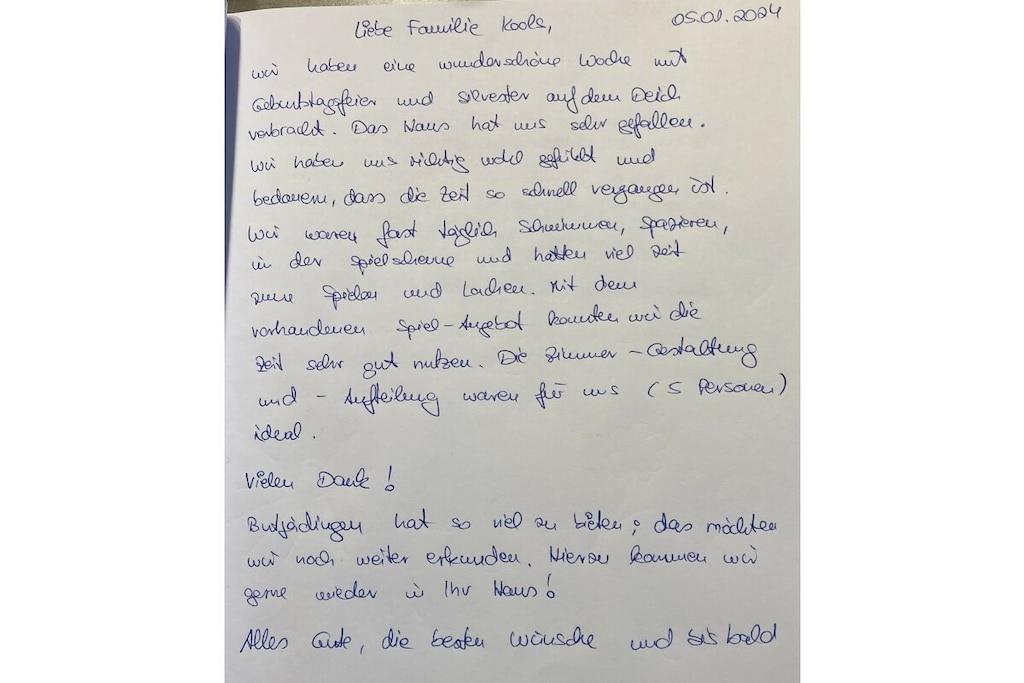 05.01.2024
Liebe Familie Kools,
wir haben eine wunderschöne Woche mit
Geburtstagsfeier und Silvester auf dem Deich
verbracht. Das Haus hat uns sehr gefallen.
Wir haben uns richtig wohl gefühlt und
bedauern, dass die Zeit so schnell vergangen ist.
Wir waren fast täglich Schwimmen, Spazieren,
in der Spielscheune und hatten viel Zeit
zum Spielen und Lachen. Mit dem
vorhandenen Spiel-Angebot konnten wir die
Zeit sehr gut nutzen. Die Zimmer-Gestaltung
und -Aufteilung waren für uns (5 Personen)
ideal.
Vielen Dank!
Butjadingen hat so viel zu bieten; das möchten
wir noch weiter erkunden. Hierzu kommen wir
gerne wieder in Ihr Haus!
Alles Gute, die besten Wünsche und bis bald